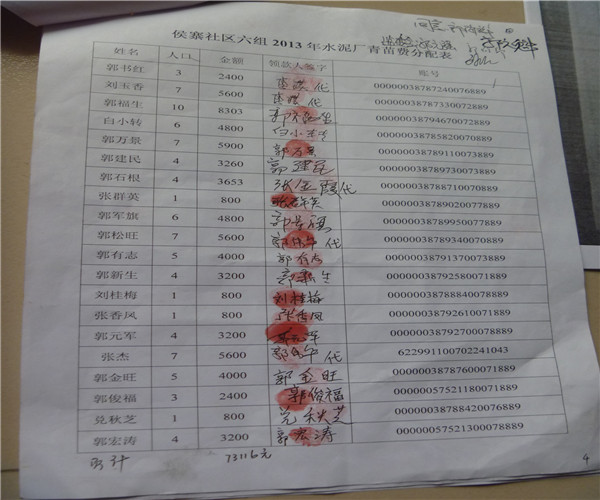 侯寨社区六组 2013 年水泥厂青苗费分配表
姓名 人口 金额 领款人签字 账号
郭书红 3 2400 代 00000038787240076889
刘玉香 7 5600 代 00000038787330072889
郭福生 10 8303 00000038794670072889
白小转 6 4800 白小 00000038785820070889
郭万景 7 5900 郭万 00000038789110073889
郭建民 4 3260 郭建民 00000038789730073889
郭石根 4 3653 张 霞代 00000038788710070889
张群英 1 800 张群英 00000038789020077889
郭军旗 6 4800 郭 旗 00000038789950077889
郭松旺 7 5600 郭 代 00000038789340070889
郭有志 5 4000 郭有志 00000038791370073889
郭新生 4 3200 郭新生 00000038792580071889
刘桂梅 1 800 刘桂梅 00000038788840078889
张香凤 1 800 张香凤 00000038792610071889
郭元军 4 3200 00000038792700078889
张杰 7 5600 郭 代 622991100702241043
郭金旺 5 4000 郭金旺 00000038787600071889
郭俊福 3 2400 郭俊福 00000057521180071889
兑秋芝 1 800 兑秋芝 00000038788420076889
郭宏涛 4 3200 郭宏涛 00000057521300078889
合计 73116元
4